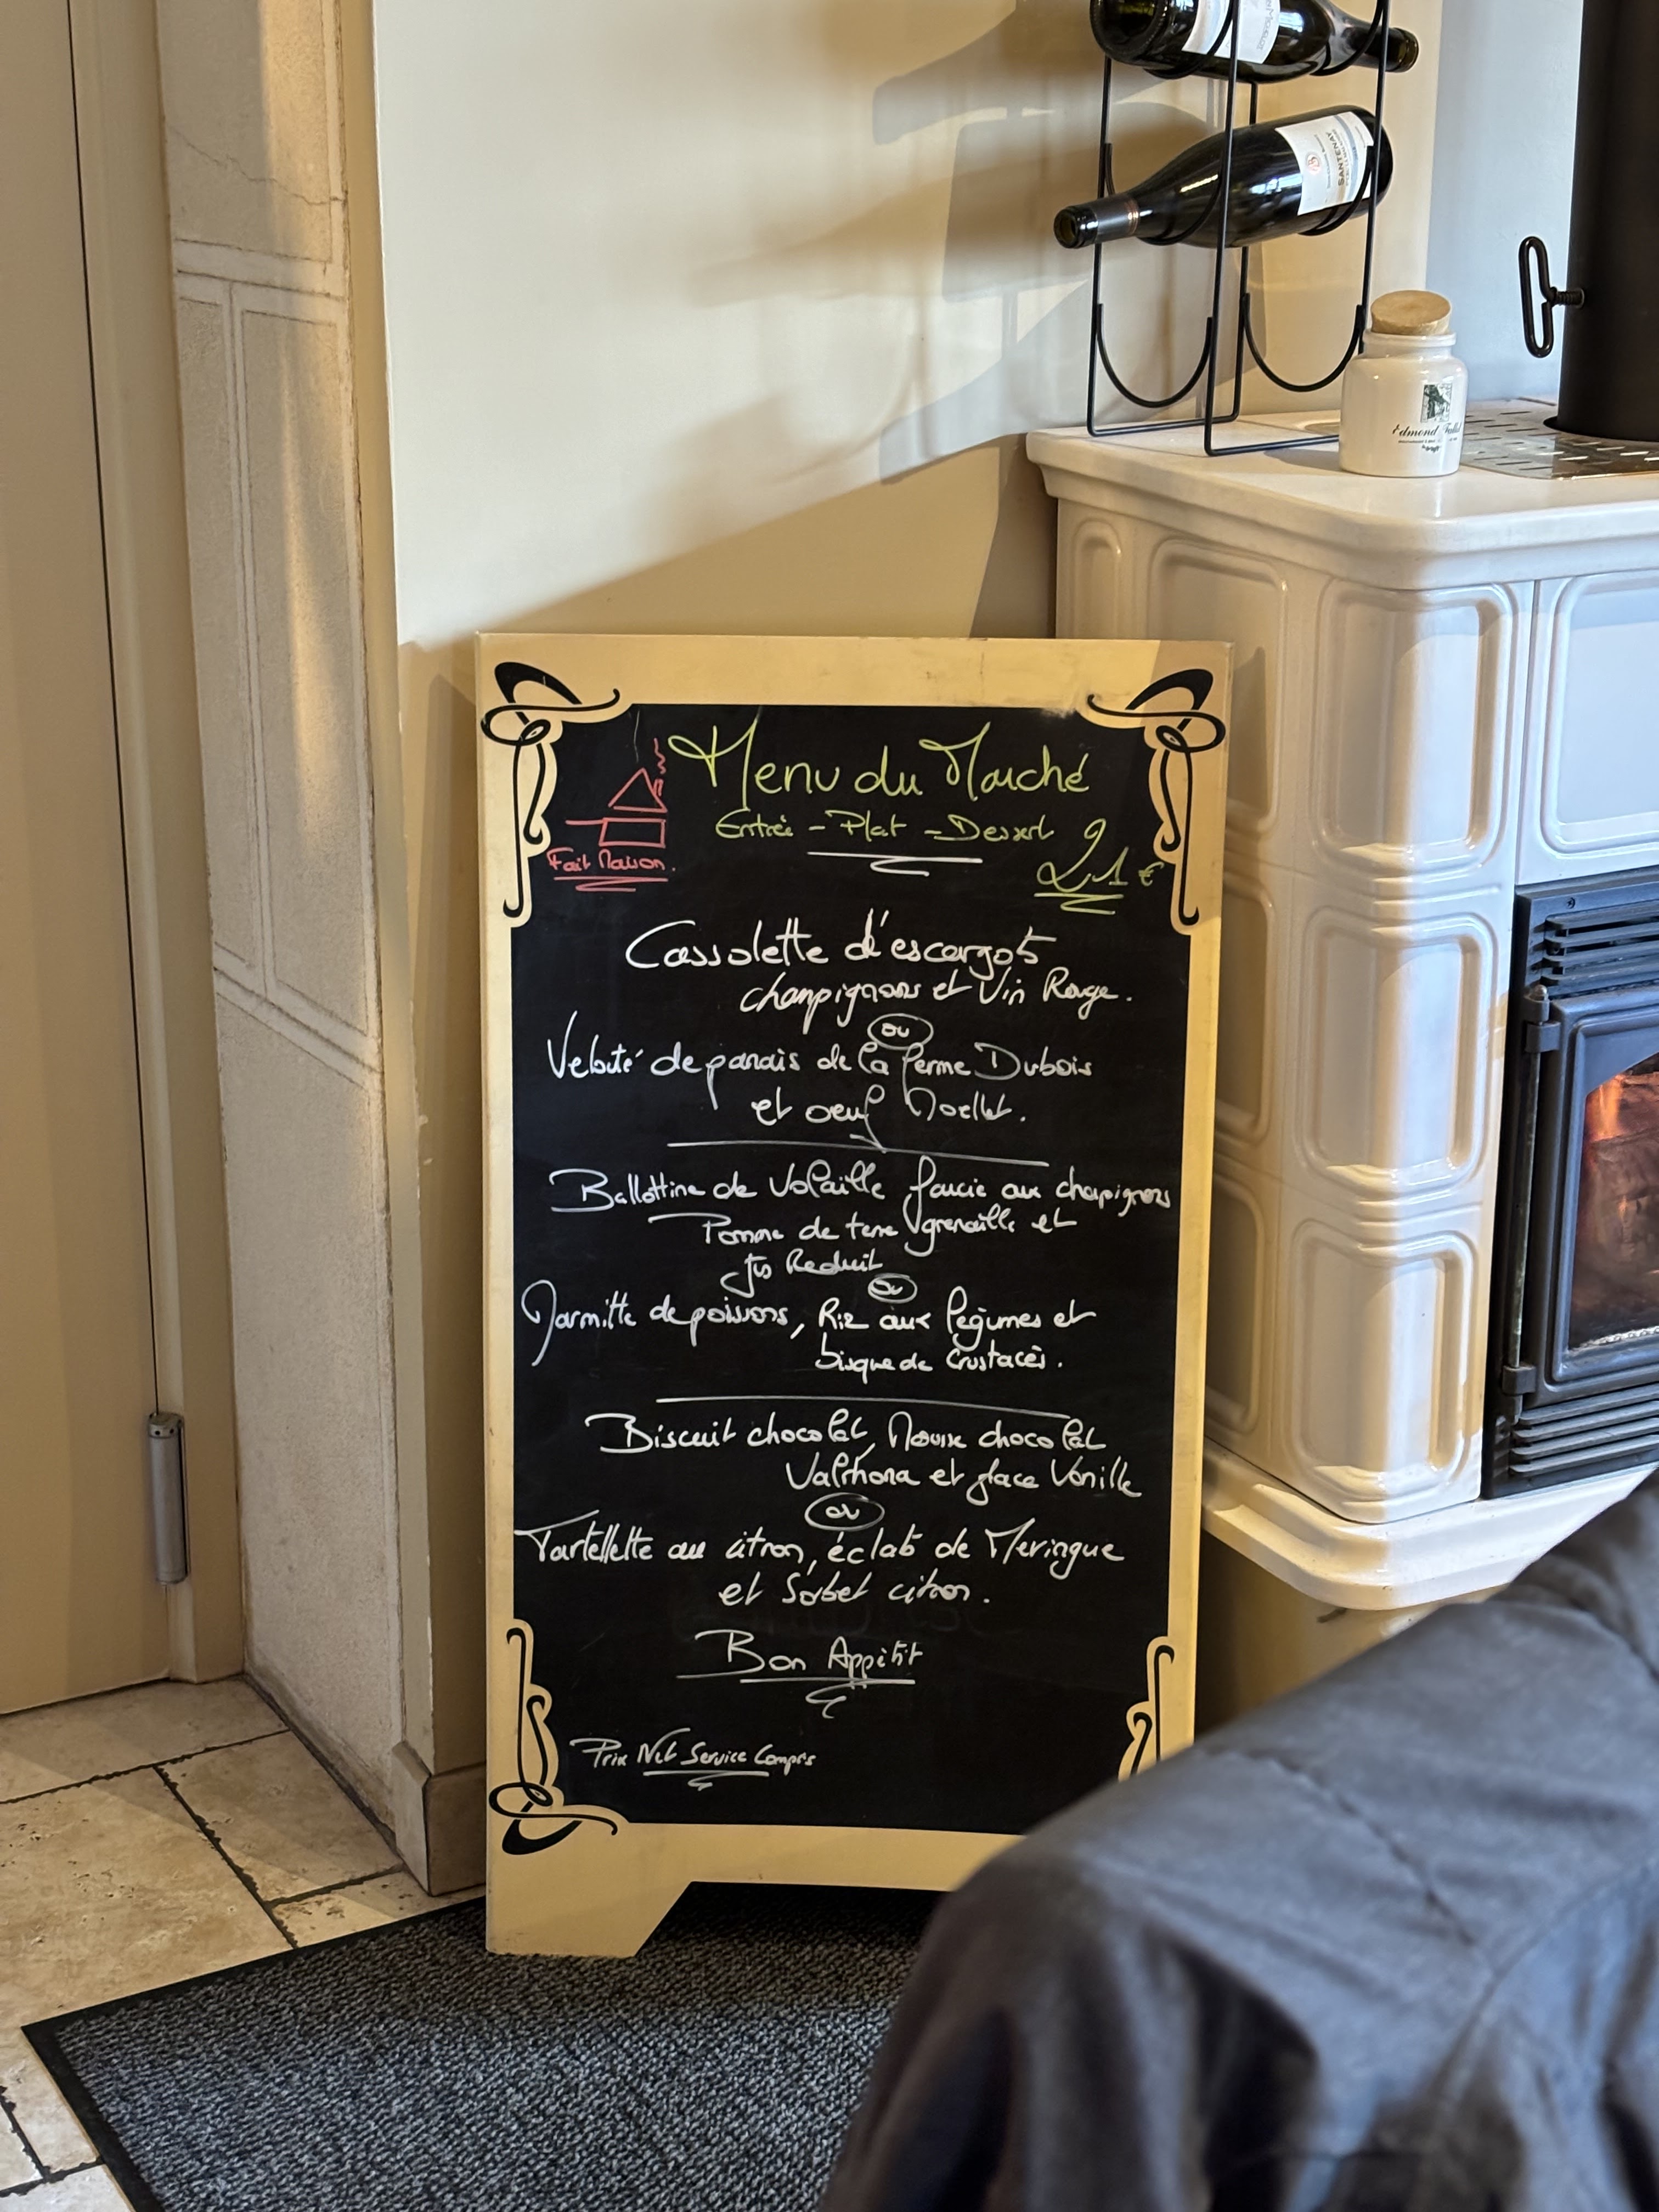 SANTENAY
Edmond Fallot
Menu du Marché
Entrée - Plat - Dessert
21 €
Fait Maison.
Cassolette d'escargots
champignons et Vin Rouge.
ou
Velouté de panais de la ferme Dubois
et oeuf Moellet.
Ballottine de Volaille farcie aux champignons
Pomme de terre grenaille et
jus Reduit
ou
Marmitte de poissons, Riz aux légumes et
bisque de Crustacés.
Biscuit chocolat, Mousse chocolat
Valrhona et glace Vanille
ou
Tartellette au citron, éclats de Meringue
et Sorbet citron.
Bon Appétit
Prix Net Service Compris